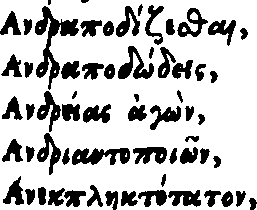 Ανδραποδίζεσθαι,
Ανδραποδώδεις,
Ανδρείας ἀγὼν,
Ανδριαντοποιῶν,
Ανεκπληκτότατον,